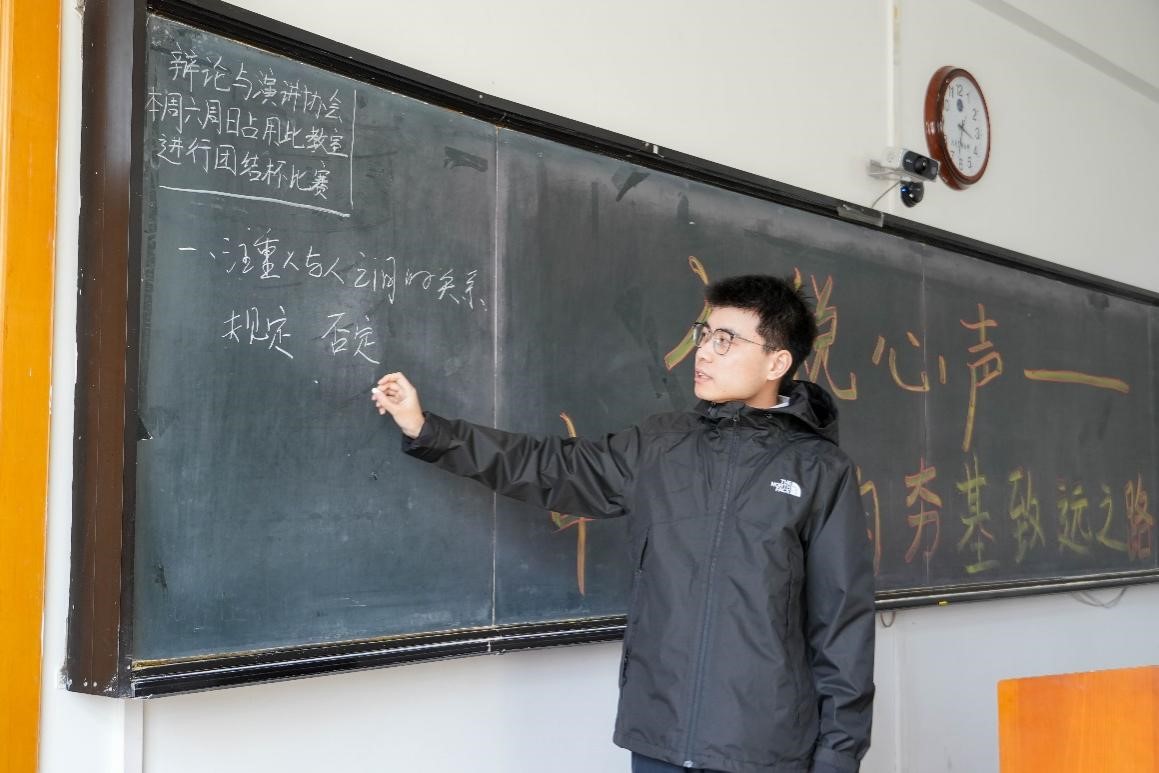 辩论与演讲协会
本周六周日占用比教室
进行团结杯比赛
一、注重人与人之间的关系、
规定 否定
说心声一
夯基致远之路
THE
NORTH
FACE
12
1
2
3
4
5
6
7
11